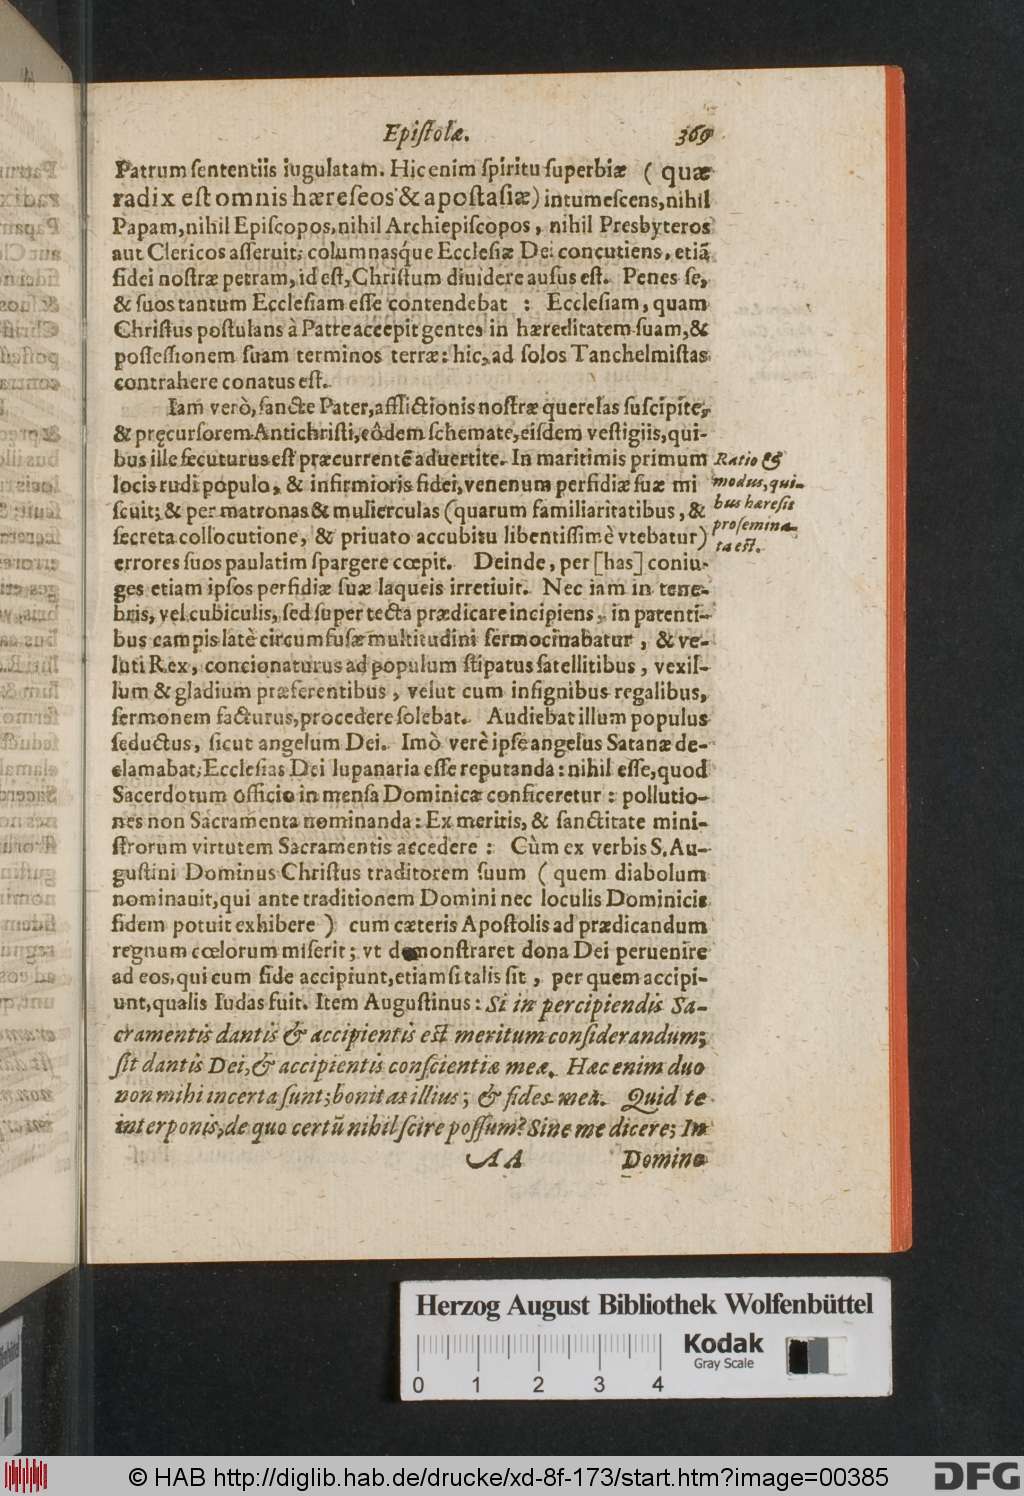 Epiſtolæ. 369
Patrum ſententiis iugulatam. Hic enim ſpiritu ſuperbiæ (quæ
radix eſt omnis hæreſeos & apoſtaſiæ) intumeſcens, nihil
Papam, nihil Epiſcopos, nihil Archiepiſcopos, nihil Presbyteros
aut Clericos aſſeruit; columnasq́ue Eccleſiæ Dei concutiens, etiā
fidei noſtræ petram, id eſt, Chriſtum diuidere auſus eſt. Penes ſe,
& ſuos tantum Eccleſiam eſſe contendebat : Eccleſiam, quam
Chriſtus poſtulans à Patre accepit gentes in hæreditatem ſuam, &
poſſeſſionem ſuam terminos terræ: hic, ad ſolos Tanchelmiſtas
contrahere conatus eſt.
Iam verò, ſancte Pater, afflictionis noſtræ querelas ſuſcipite,
& pręcurſorem Antichriſti, eôdem ſchemate, eiſdem veſtigiis, qui-
bus ille ſecuturus eſt præcurrentē aduertite. In maritimis primum
Ratio &
locis rudi populo, & infirmioris fidei, venenum perfidiæ ſuæ mi
modus, qui-
ſcuit; & per matronas & mulierculas (quarum familiaritatibus, &
bus hæreſis
ſecreta collocutione, & priuato accubitu libentiſſimè vtebatur)
proſemina-
ta eſt.
errores ſuos paulatim ſpargere cœpit. Deinde, per [has] coniu-
ges etiam ipſos perfidiæ ſuæ laqueis irretiuit. Nec iam in tene-
bris, vel cubiculis, ſed ſuper tecta prædicare incipiens, in patenti-
bus campis latè circumfuſæ multitudini ſermocinabatur, & ve-
luti Rex, concionaturus ad populum ſtipatus ſatellitibus, vexil-
lum & gladium præferentibus, velut cum inſignibus regalibus,
ſermonem facturus, procedere ſolebat. Audiebat illum populus
ſeductus, ſicut angelum Dei. Imò verè ipſe angelus Satanæ de-
clamabat; Eccleſias Dei lupanaria eſſe reputanda: nihil eſſe, quod
Sacerdotum officio in menſa Dominica conficeretur: pollutio-
nes non Sacramenta nominanda: Ex meritis, & ſanctitate mini-
ſtrorum virtutem Sacramentis accedere : Cùm ex verbis S. Au-
guſtini Dominus Chriſtus traditorem ſuum (quem diabolum
nominauit, qui ante traditionem Domini nec loculis Dominicis
fidem potuit exhibere) cum cæteris Apoſtolis ad prædicandum
regnum cœlorum miſerit; vt demonſtraret dona Dei peruenire
ad eos, qui cum fide accipiunt, etiamſi talis ſit, per quem accipi-
unt, qualis Iudas fuit. Item Auguſtinus: Si in percipiendis Sa-
cramentis dantis & accipientis eſt meritum conſiderandum;
ſit dantis Dei, & accipientis conſcientiæ meæ. Hæc enim duo
non mihi incerta ſunt; bonitas illius; & fides mea. Quid te
interponis, de quo certū nihil ſcire poſſum? Sine me dicere; In
AA Domino
Herzog August Bibliothek Wolfenbüttel
0 1 2 3 4
Kodak
Gray Scale
© HAB http://diglib.hab.de/drucke/xd-8f-173/start.htm?image=00385
DFG